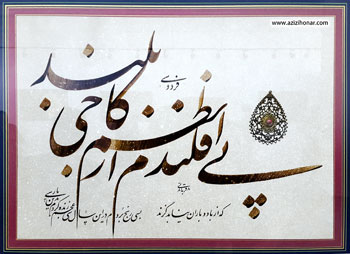 www.azizihonar.com
فردوسی
پی افکندم از نظم کاخی بلند
که از باد و باران نیابد گزند
بسی رنج بردم در این سال سی
عجم زنده کردم بدین پارسی